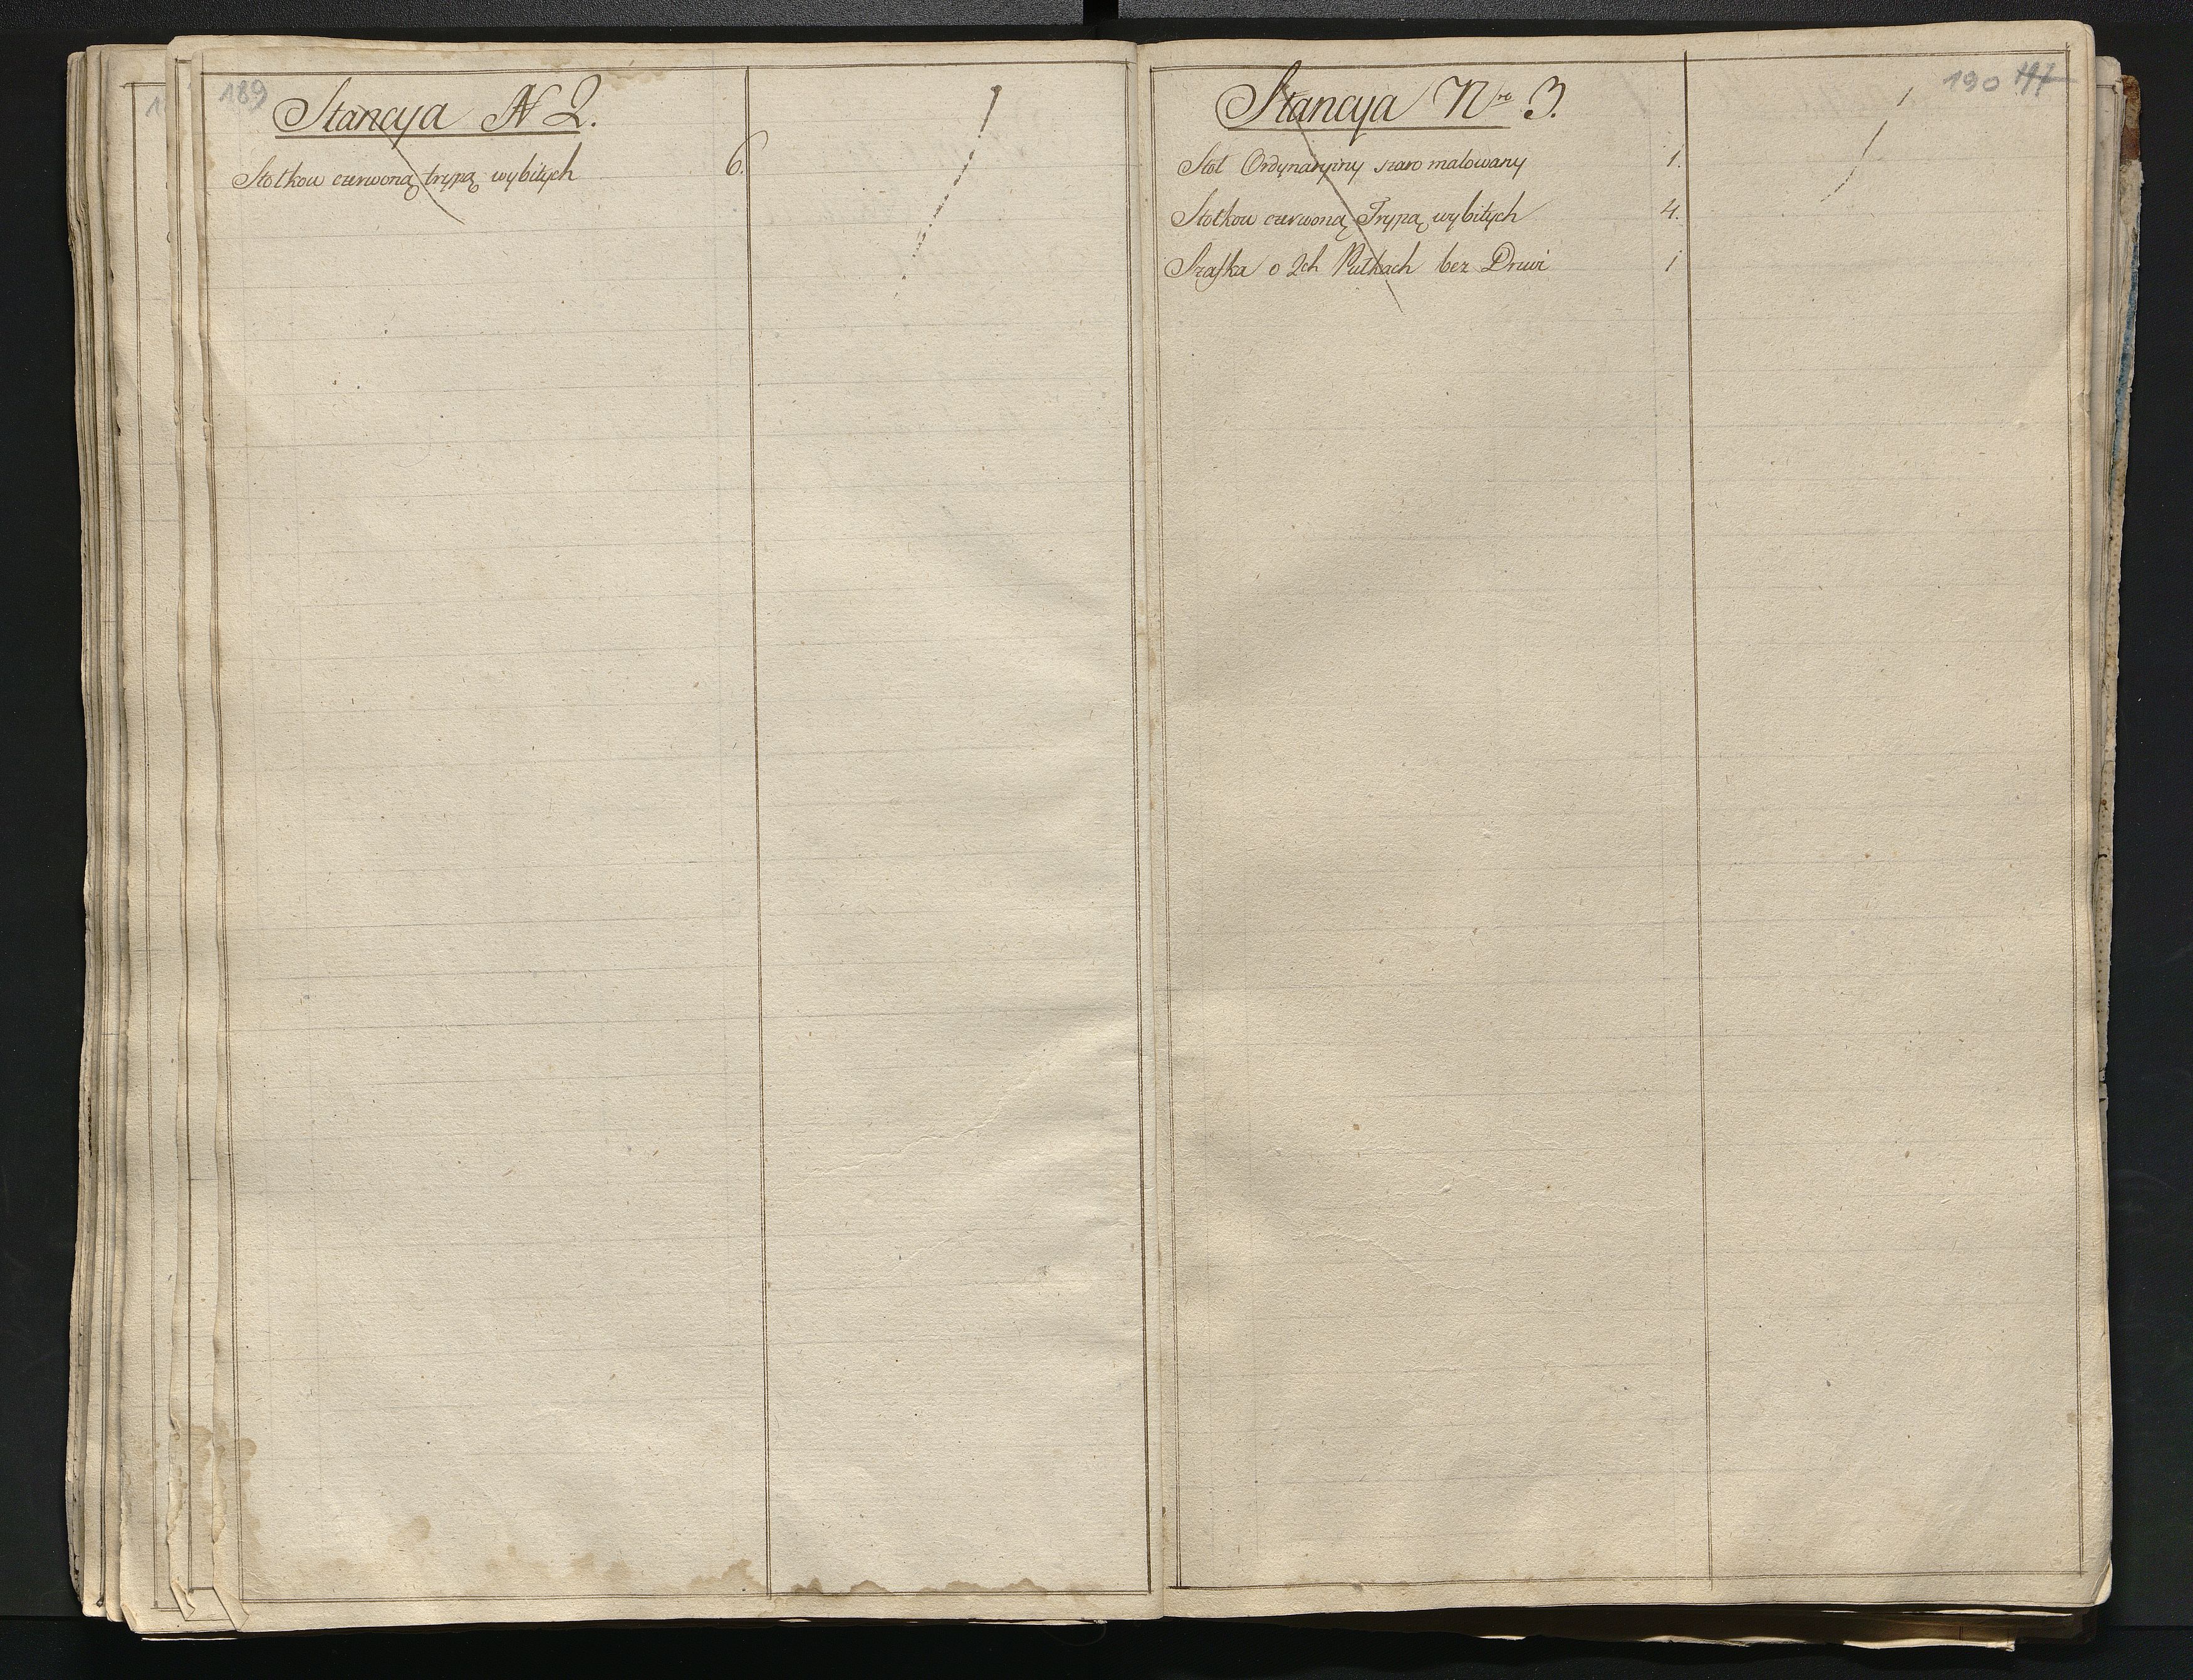 189
Stancya N 2.
Stołkow czerwoną trypą wybitych 6.
190
Stancya Nro 3.
Stoł Ordynaryiny szaro malowany 1.
Stołkow czerwoną Trypą wybitych 4.
Szafka o 2ch Pułkach bez Drzwi 1